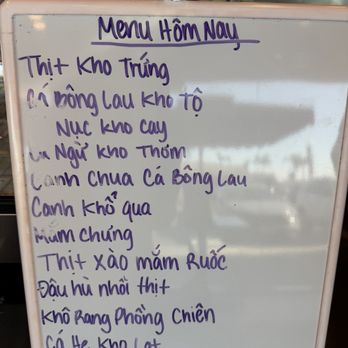 Menu Hôm Nay
Thịt Kho Trứng
Cá Bông Lau Kho Tộ
Nục Kho Cay
Cá Ngừ Kho Thơm
Canh Chua Cá Bông Lau
Canh Khổ qua
Mắm Chưng
Thịt Xào mắm Ruốc
Đậu hủ nhồi thịt
Khô Rang Phồng Chiên
Cá He Kho Lạt